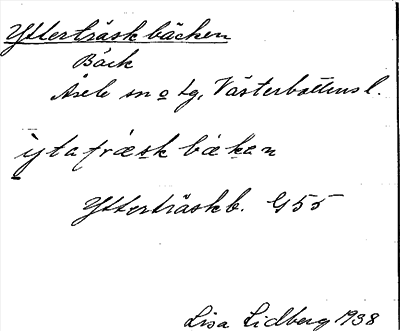 Ytterträskbäcken
Bäck
Åsele sn o tg, Västerbottens l.
ytatræsk bæken
Ytterträskb. G55
Lisa Lidberg 1938